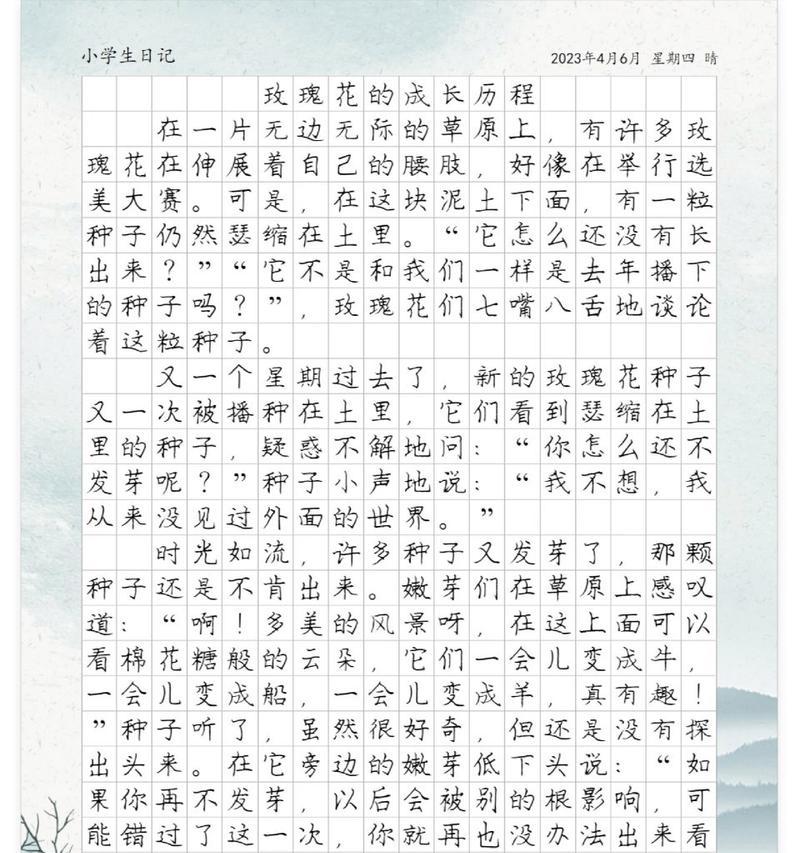 小学生日记
2023年4月6月 星期四 晴
玫瑰花的成长历程
在一片无边无际的草原上，有许多玫
瑰花在伸展着自己的腰肢，好像在举行选
美大赛。可是，在这块泥土下面，有一粒
种子仍然瑟缩在土里。“它怎么还没有长
出来？”“它不是和我们一样是去年播下
的种子吗？”，玫瑰花们七嘴八舌地谈论
着这粒种子。
又一个星期过去了，新的玫瑰花种子
又一次被播种在土里，它们看到瑟缩在土
里的种子，疑惑不解地问：“你怎么还不
发芽呢？”种子小声地说：“我不想，我
从来没见过外面的世界。”
时光如流，许多种子又发芽了，那颗
种子还是不肯出来。嫩芽们在草原上感叹
道：“啊！多美的风景呀，在这上面可以
看棉花糖般的云朵，它们一会儿变成牛，
一会儿变成船，一会儿变成羊，真有趣！
”种子听了，虽然很好奇，但还是没有探
出头来。在它旁边的嫩芽低下头说：“如
果你再不发芽，以后会被别的根影响，可
能错过了这一次，你就再也没办法出来看